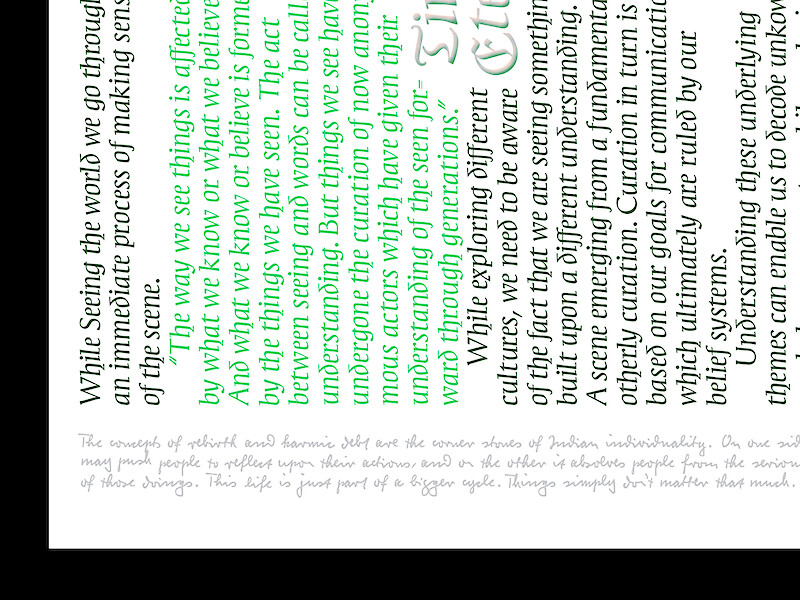 While Seeing the world we go through
an immediate process of making sens
of the scene.
"The way we see things is affected
by what we know or what we believe
And what we know or believe is forme
by the things we have seen. The act
between seeing and words can be call
understanding. But things we see hav
undergone the curation of now anony
mous actors which have given their
understanding of the seen for=
ward through generations."
While exploring different
cultures, we need to be aware
of the fact that we are seeing somethin
built upon a different understanding.
A scene emerging from a fundamenta
otherly curation. Curation in turn is
based on our goals for communicatio
which ultimately are ruled by our
belief systems.
Understanding these underlying
themes can enable us to decode unkow
The concepts of rebirth and karmic debt are the corner stones of Indian individuality. On one sid
may push people to reflect upon their actions, and on the other it absolves people from the seriou
of those doings. This life is just part of a bigger cycle. Things simply don't matter that much.